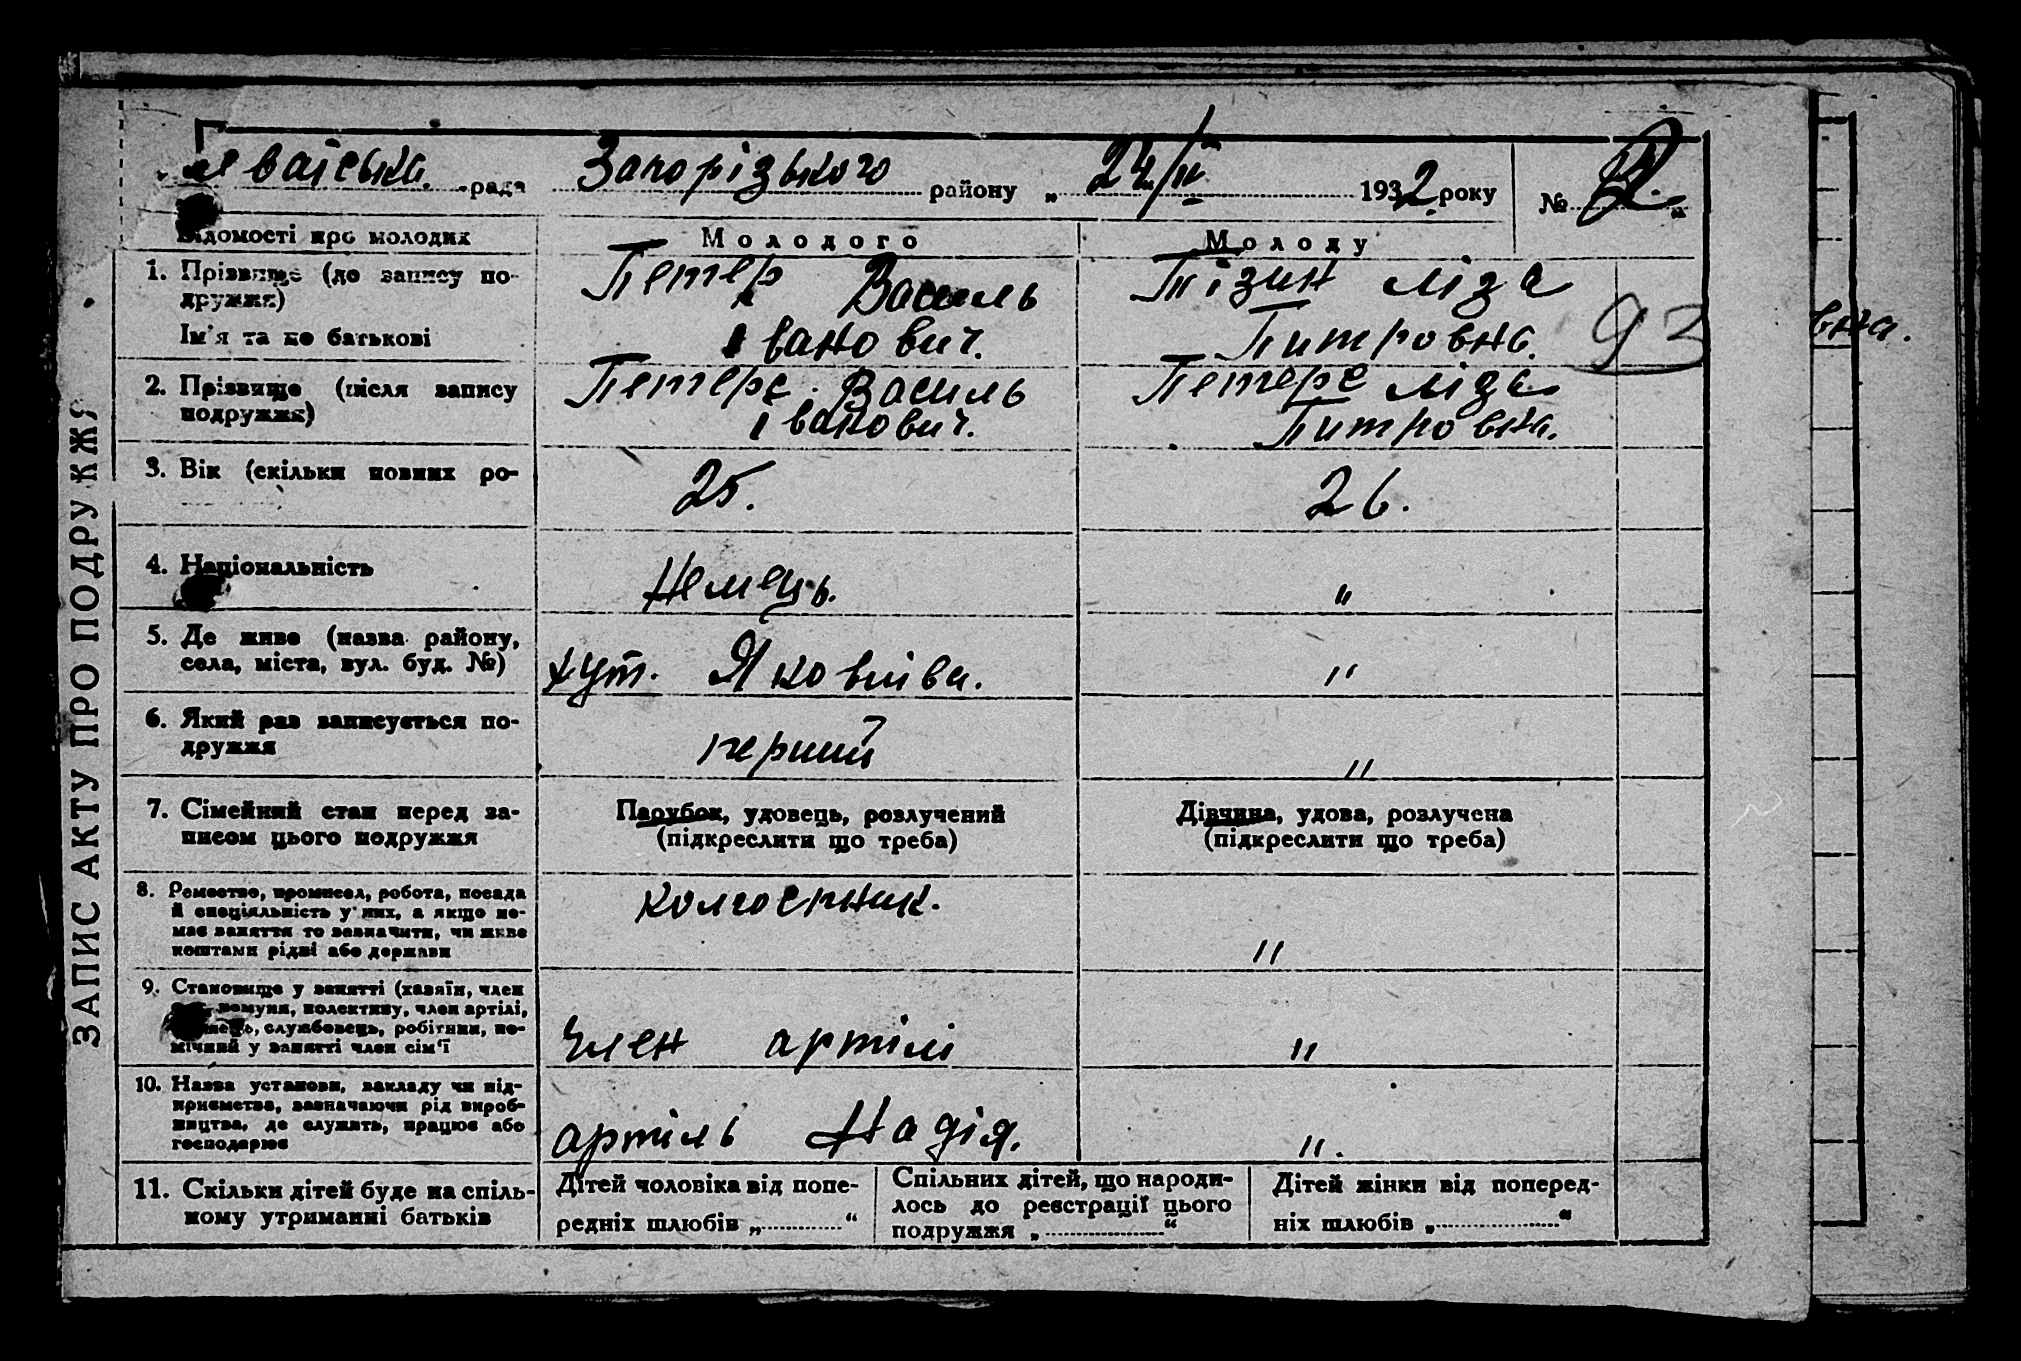 ЗАПИС АКТУ ПРО ПОДРУЖЖЯ
рада Запорізького району „ 24/II 1932 року №
Відомості про молодих Молодого Молоду
1. Прізвище (до запису по- Петер Василь Тізин Ліза
дружжя)
Ім'я та по батькові Іванович. Питровна. 93
2. Прізвище (після запису Петерс Василь Петерс Ліза
подружжя) Іванович. Питровна.
3. Вік (скільки повних ро- 25. 26.
4. Національність Немець. "
5. Де живе (назва району,
села, міста, вул. буд. №) хут. Яковліва. "
6. Який раз записується по- перший "
дружжя
7. Сімейний стан перед за- Парубок, удовець, розлучений Дівчина, удова, розлучена
писом цього подружжя (підкреслити що треба) (підкреслити що треба)
8. Ремество, промисел, робота, посада колгоспник.
й спеціяльність у них, а якщо не-
має заняття то зазначити, чи живе "
коштами рідні або держави
9. Становище у занятті (хазяїн, член
комуни, колективу, член артілі,
службовець, робітник, по-
мічний у занятті член сім'ї член артілі "
10. Назва установи, закладу чи під-
приємства, зазначаючи рід вироб-
ництва, де служить, працює або артіль Надія. ".
господарює
11. Скільки дітей буде на спіль- Дітей чоловіка від попе- Спільних дітей, що народи- Дітей жінки від поперед-
ному утриманні батьків редніх шлюбів „ “ лось до реєстрації цього ніх шлюбів „ “
подружжя „ “
вна.